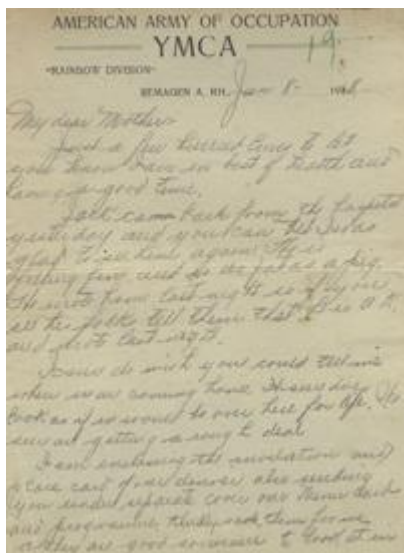 AMERICAN ARMY OF OCCUPATION
YMCA
19.
"RAINBOW DIVISION"
REMAGEN A. RH., Jan 8 - 1918
My dear Mother-
Just a few hurried lines to let
you know I am in best of health and
having a good time.
back from the hospital
yesterday and you can bet I was
glad to see him again. He is
looking fine and as as a pig.
He wrote home last night so if you
see his folks tell them that is O.K.
and wrote last night.
I sure do wish you could tell me
when we are coming home. It sure does
look as if we would be over here for life. We
sure are getting a rough deal
I am enclosing the invitation and
a card of our dinner also sending
you under separate cover our menu card
and programme, kindly them for me
as they are good souvenirs to